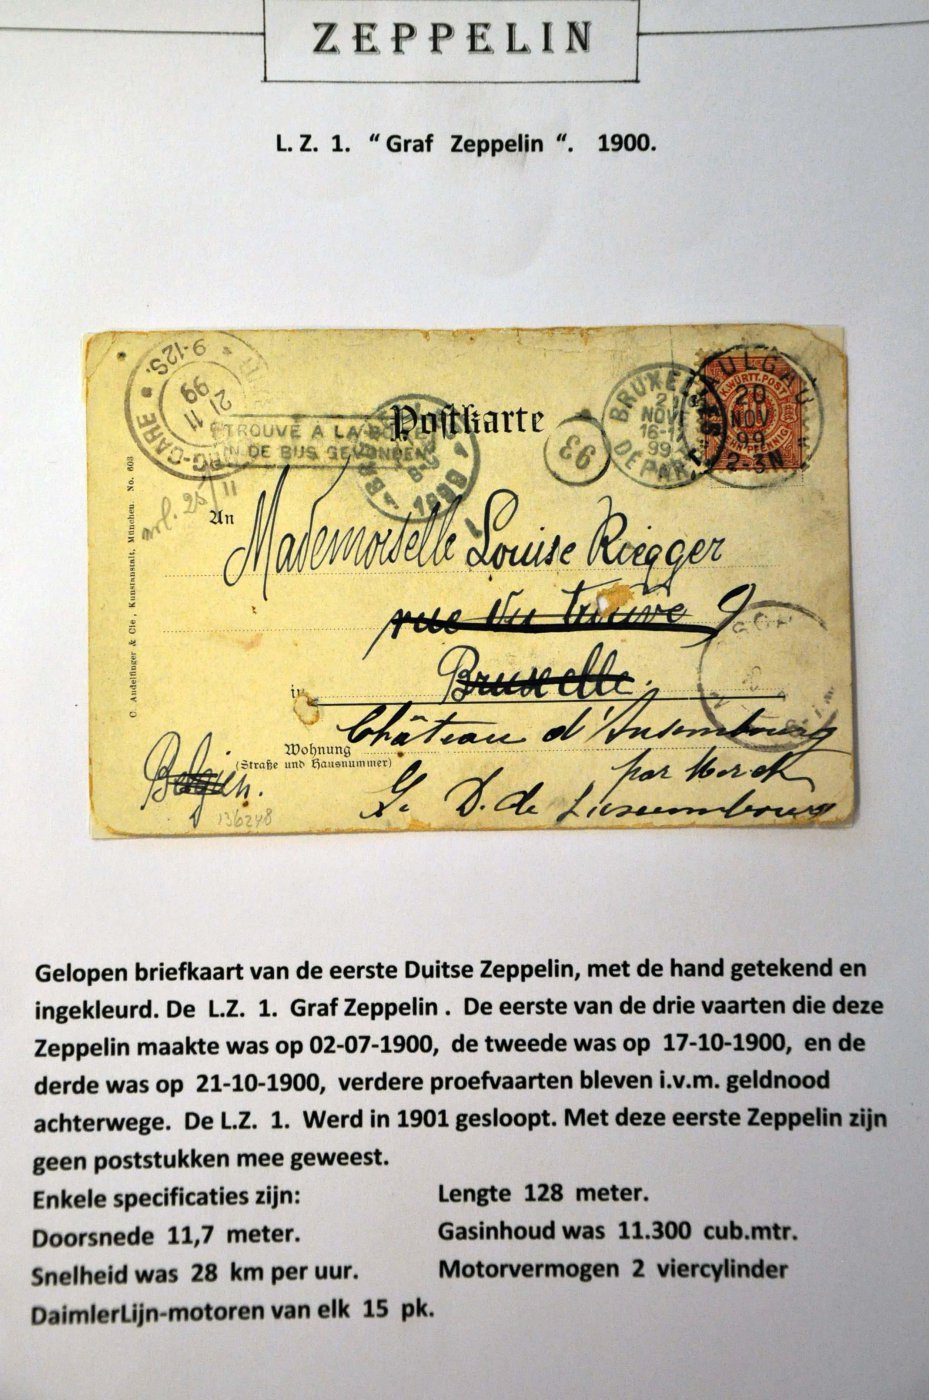 ZEPPELIN
L. Z. 1. “ Graf Zeppelin “. 1900.
9-12S.
21 11
99
TROUVÉ A LA BOITE
IN DE BUS GEVONDEN
1899
Postkarte
93
BRUXELLES
21
NOVE
99
DÉPART
SAULGAU
20
NOV
99
2-3N
K. WÜRTT. POST
An
Mademoiselle Louise Riegger
9
Bruxelle.
in
Château d'Ansembourg
Wohnung
(Straße und Hausnummer)
par Mersch
Belgien.
G. D. de Luxembourg
136248
C. Andelfinger & Cie., Kunstanstalt, München. No. 603
Gelopen briefkaart van de eerste Duitse Zeppelin, met de hand getekend en
ingekleurd. De L.Z. 1. Graf Zeppelin . De eerste van de drie vaarten die deze
Zeppelin maakte was op 02-07-1900, de tweede was op 17-10-1900, en de
derde was op 21-10-1900, verdere proefvaarten bleven i.v.m. geldnood
achterwege. De L.Z. 1. Werd in 1901 gesloopt. Met deze eerste Zeppelin zijn
geen poststukken mee geweest.
Enkele specificaties zijn: Lengte 128 meter.
Doorsnede 11,7 meter. Gasinhoud was 11.300 cub.mtr.
Snelheid was 28 km per uur. Motorvermogen 2 viercylinder
DaimlerLijn-motoren van elk 15 pk.